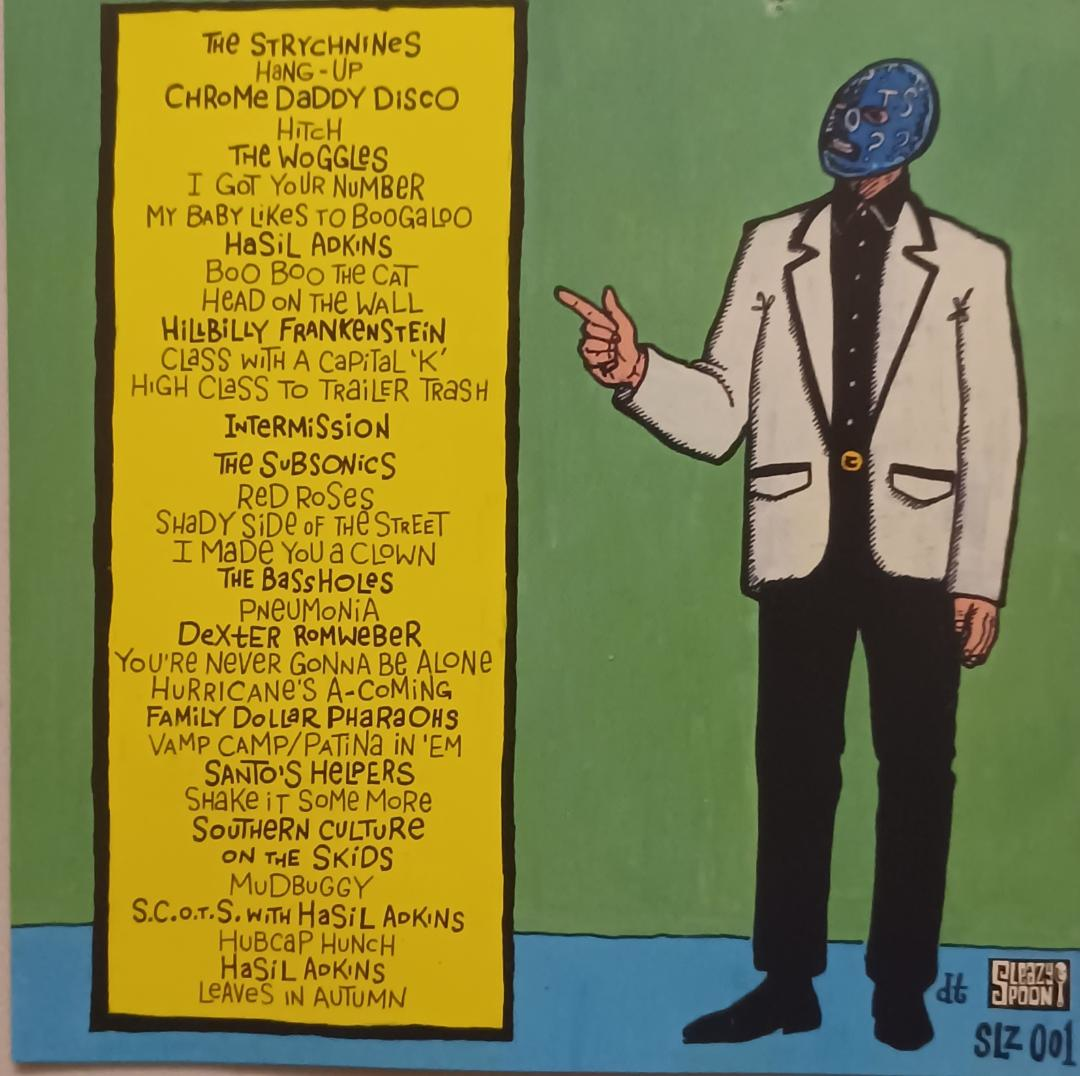 THE STRYCHNINES
HANG-UP
CHROME DADDY DISCO
HITCH
THE WOGGLES
I GOT YOUR NUMBER
MY BABY LIKES TO BOOGALOO
HASIL ADKINS
BOO BOO THE CAT
HEAD ON THE WALL
HILLBILLY FRANKENSTEIN
CLASS WITH A CAPITAL 'K'
HIGH CLASS TO TRAILER TRASH
INTERMISSION
THE SUBSONICS
RED ROSES
SHADY SIDE OF THE STREET
I MADE YOU A CLOWN
THE BASSHOLES
PNEUMONIA
DEXTER ROMWEBER
YOU'RE NEVER GONNA BE ALONE
HURRICANE'S A-COMING
FAMILY DOLLAR PHARAOHS
VAMP CAMP/PATINA IN 'EM
SANTO'S HELPERS
SHAKE IT SOME MORE
SOUTHERN CULTURE
ON THE SKIDS
MUDBUGGY
S.C.O.T.S. WITH HASIL ADKINS
HUBCAP HUNCH
HASIL ADKINS
LEAVES IN AUTUMN
dt
SLEAZY
SPOON
SLZ 001